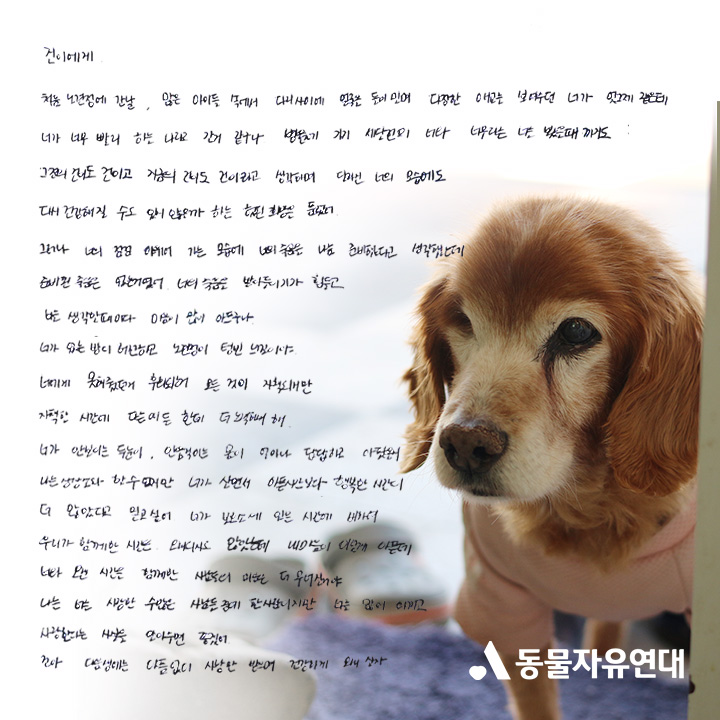 건이에게
처음 노견정에 간날, 많은 아이들 속에서 다리사이에 얼굴을 들이밀며 다정한 애교를 보여주던 너가 엊그제 같은데
너가 너무 빨리 하늘나라로 간거 같구나
그전의 건이도 건이고 지금의 건이도 건이라고 생각하며 달라진 너의 모습에도
다시 건강해질 수도 있지 않을까 하는 희망은 있었어
그러나 너의 점점 야위어 가는 모습에 너의 죽음을 나름 준비한다고 생각했는데
준비된 죽음은 없는거였어 너의 죽음을 받아들이기가 힘들고
너를 생각할때마다 마음이 많이 아프구나
너가 없는 방이 허전하고 노견정이 텅빈 느낌이야
너에게 못해줬던게 후회되어 모든 것이 자책되지만
자책할 시간에 다른 아이들 한테 더 노력해야 해
너가 안보이는 두눈이, 안들리는 귀가 얼마나 답답하고 아팠을지
나는 상상조차 할 수 없지만 너가 살면서 아픈시간보다 행복한 시간이
더 많았다고 믿고싶어 너가 보호소에 있는 시간에 비하면
우리가 함께한 시간은 짧았는데 내 마음이 이렇게 아픈데
너와 오랜 시간을 함께한 사람들의 마음은 더 무너질거야
나는 너를 사랑한 수많은 사람들 중에 한사람이지만 너를 많이 아끼고
사랑한다는 사실을 알아주면 좋겠어
건아 다음생에는 아픔없이 사랑만 받으며 건강하게 오래 살자
동물자유연대